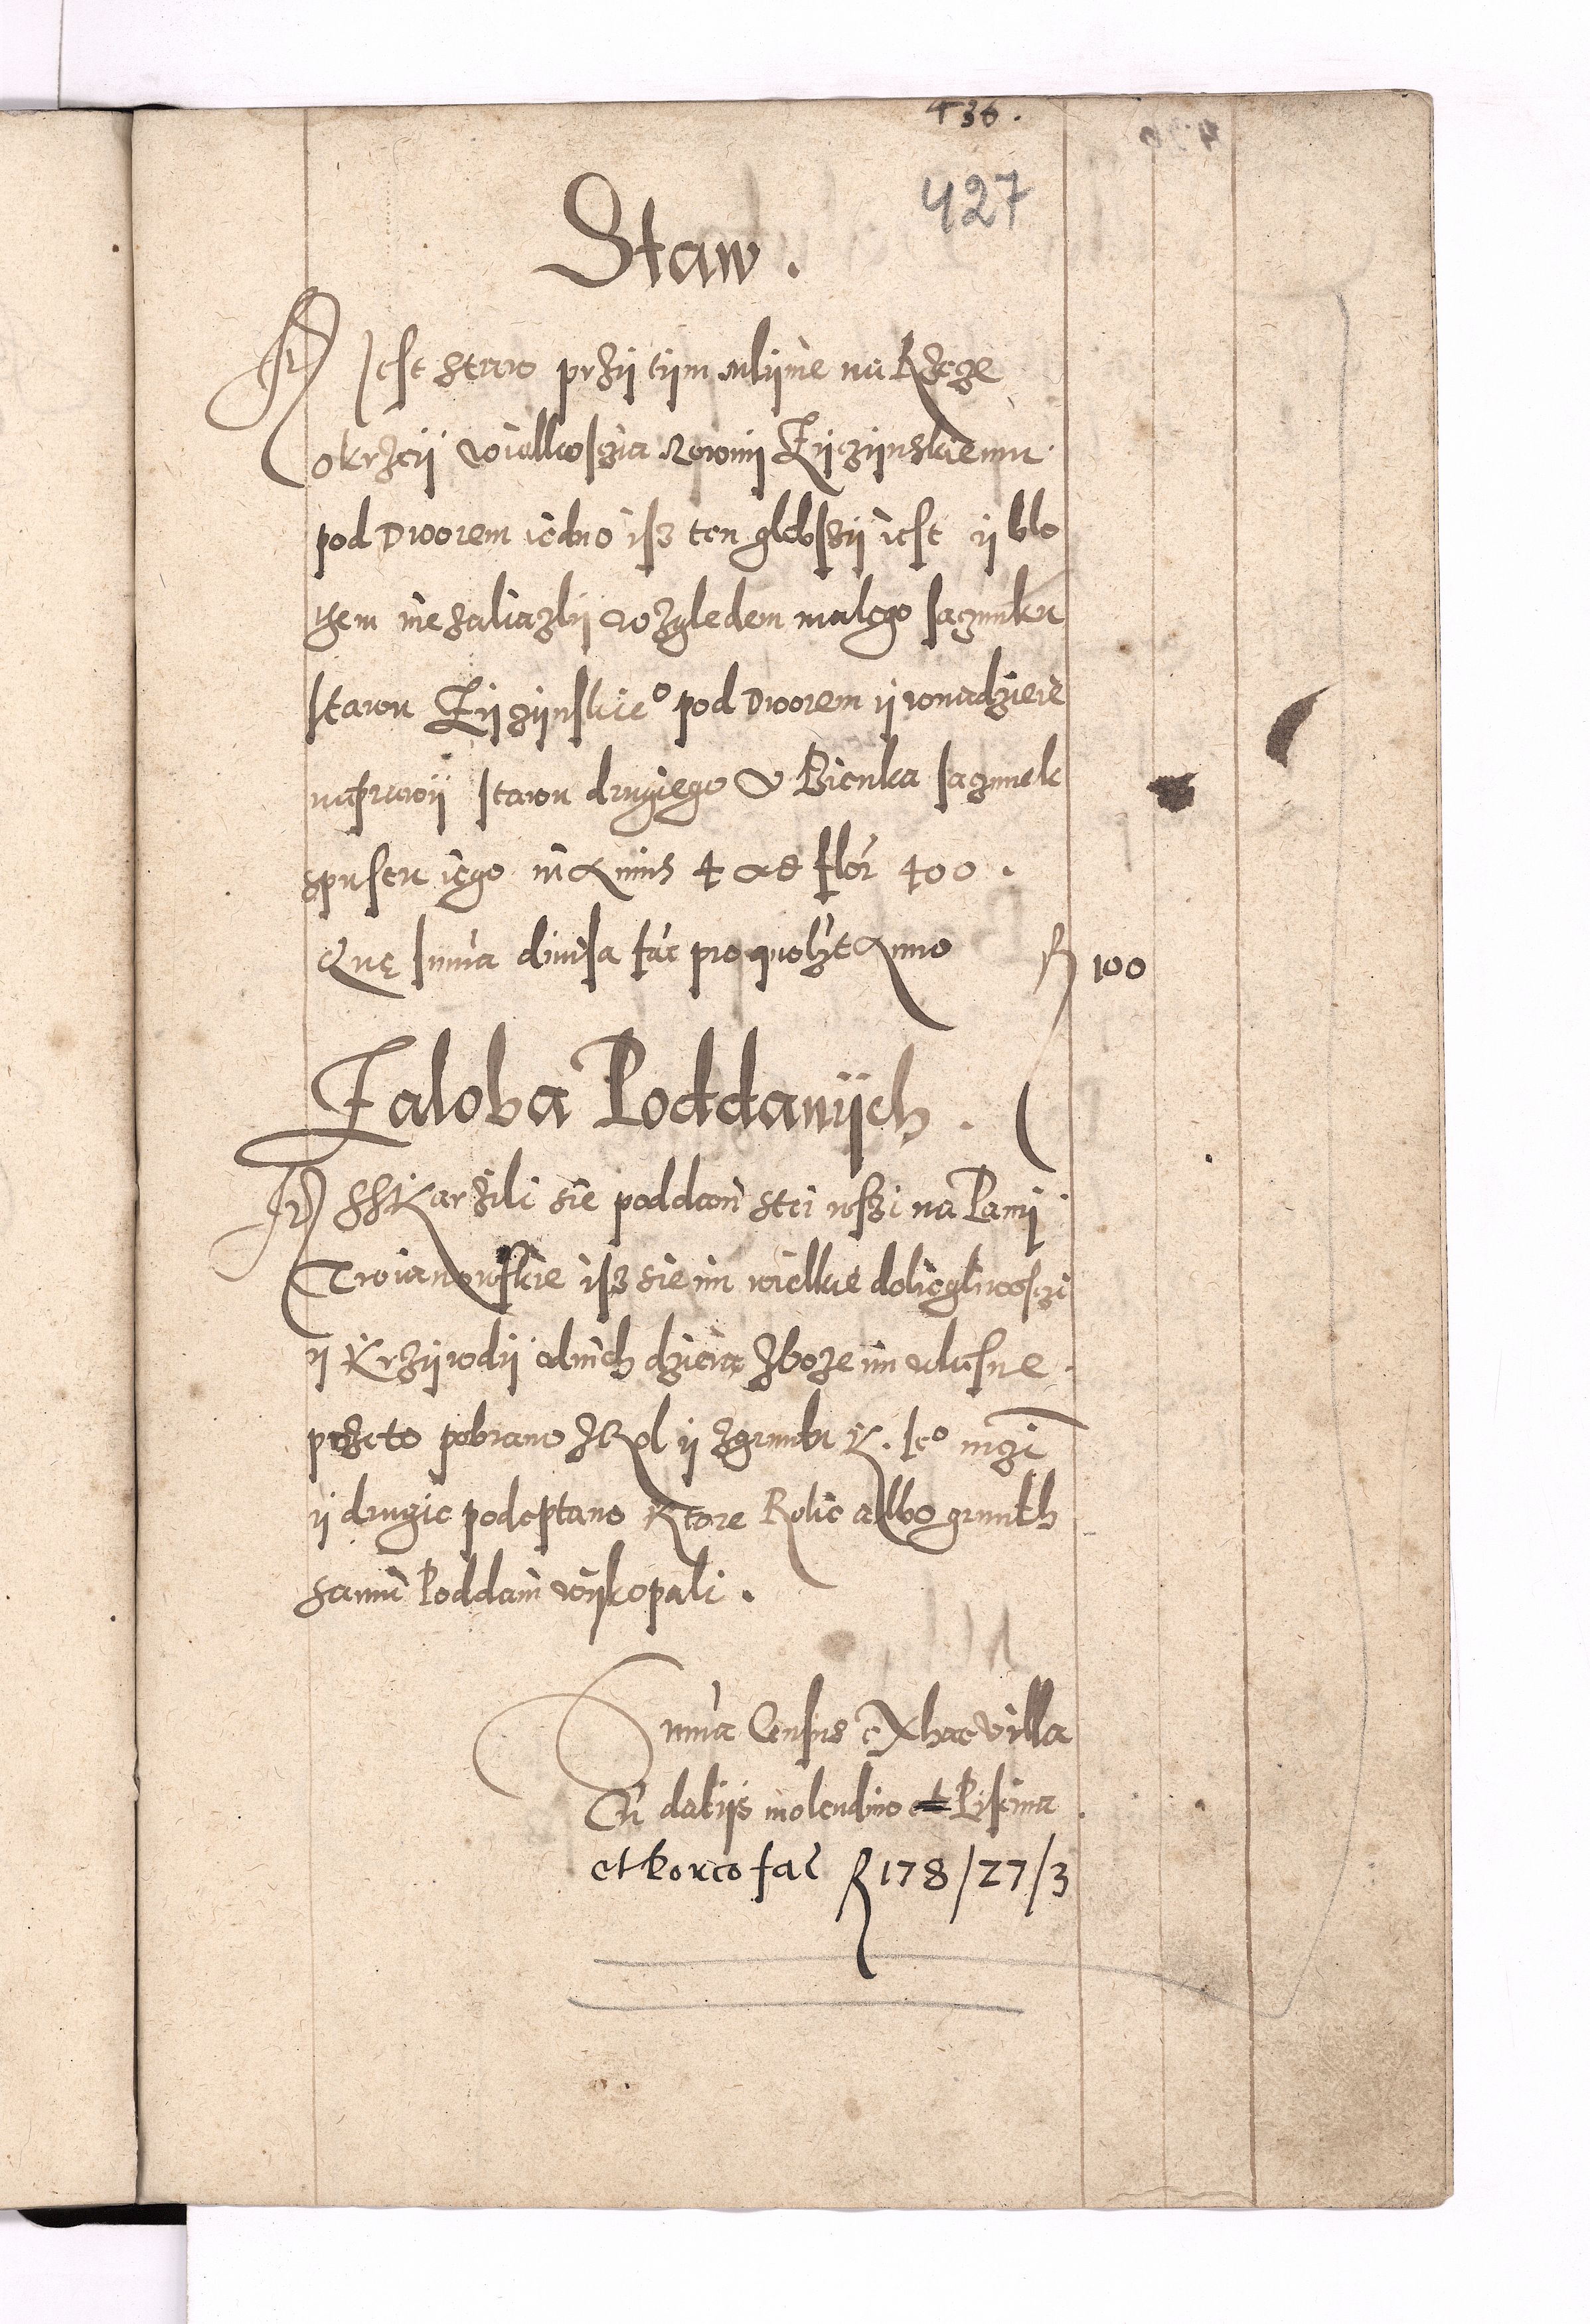 436.
427
Staw.
Jt Jest staw przÿ tÿm mlÿnie na Rzcze
okrzeÿ wielkoscia rownÿ Zÿczÿnskiemu
pod Dworem iedno isz ten glebszÿ iest ÿ blo
tem nie zaliazlÿ wzgledem malego sacunku
stawu Zÿczÿnskie° pod Dworem ÿ wnadzieie
naprawÿ stawu drugiego v Bienka sacunek
spustu iego in Annis 4 ad flor 400.
Quę suma diuisa fac pro quolzt Anno R 100
Zaloba Poddanÿch.
Jt SSkarzili sie poddani stei wszi na Panÿ
Troianowskie isz sie im wielkie dolegliwosczi
ÿ Krzÿwdÿ od nich dzieia Zboze im wlasne
przeto pobrano Z Rol ÿ z gruntu K. Je° mczi
ÿ drugie podeptano Ktore Role albo grunth
sami Poddani wÿkopali.
Suma Census ex hac villa
Cu datijs molendino et Piscina
et korco fac R 178/27/3